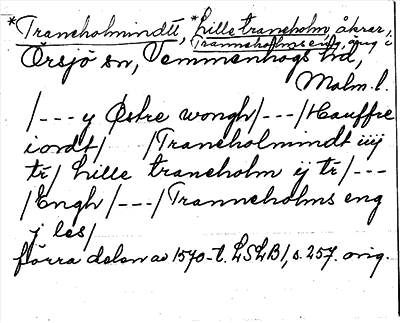 *Tranholmindtt, *Lille traneholm åkrar,
Tranneholms eng, äng i
Örsjö sn, Vemmenhögs hd,
Malm. l.
/--- y Østre wongh/---/Hauffre
iordt/ /Tranholmindt iiij
tr/ Lille traneholm ij tr/---
/Engh/---/Tranneholms eng
j les/
förra delen av 1570-t. LSLB1, s. 257. orig.